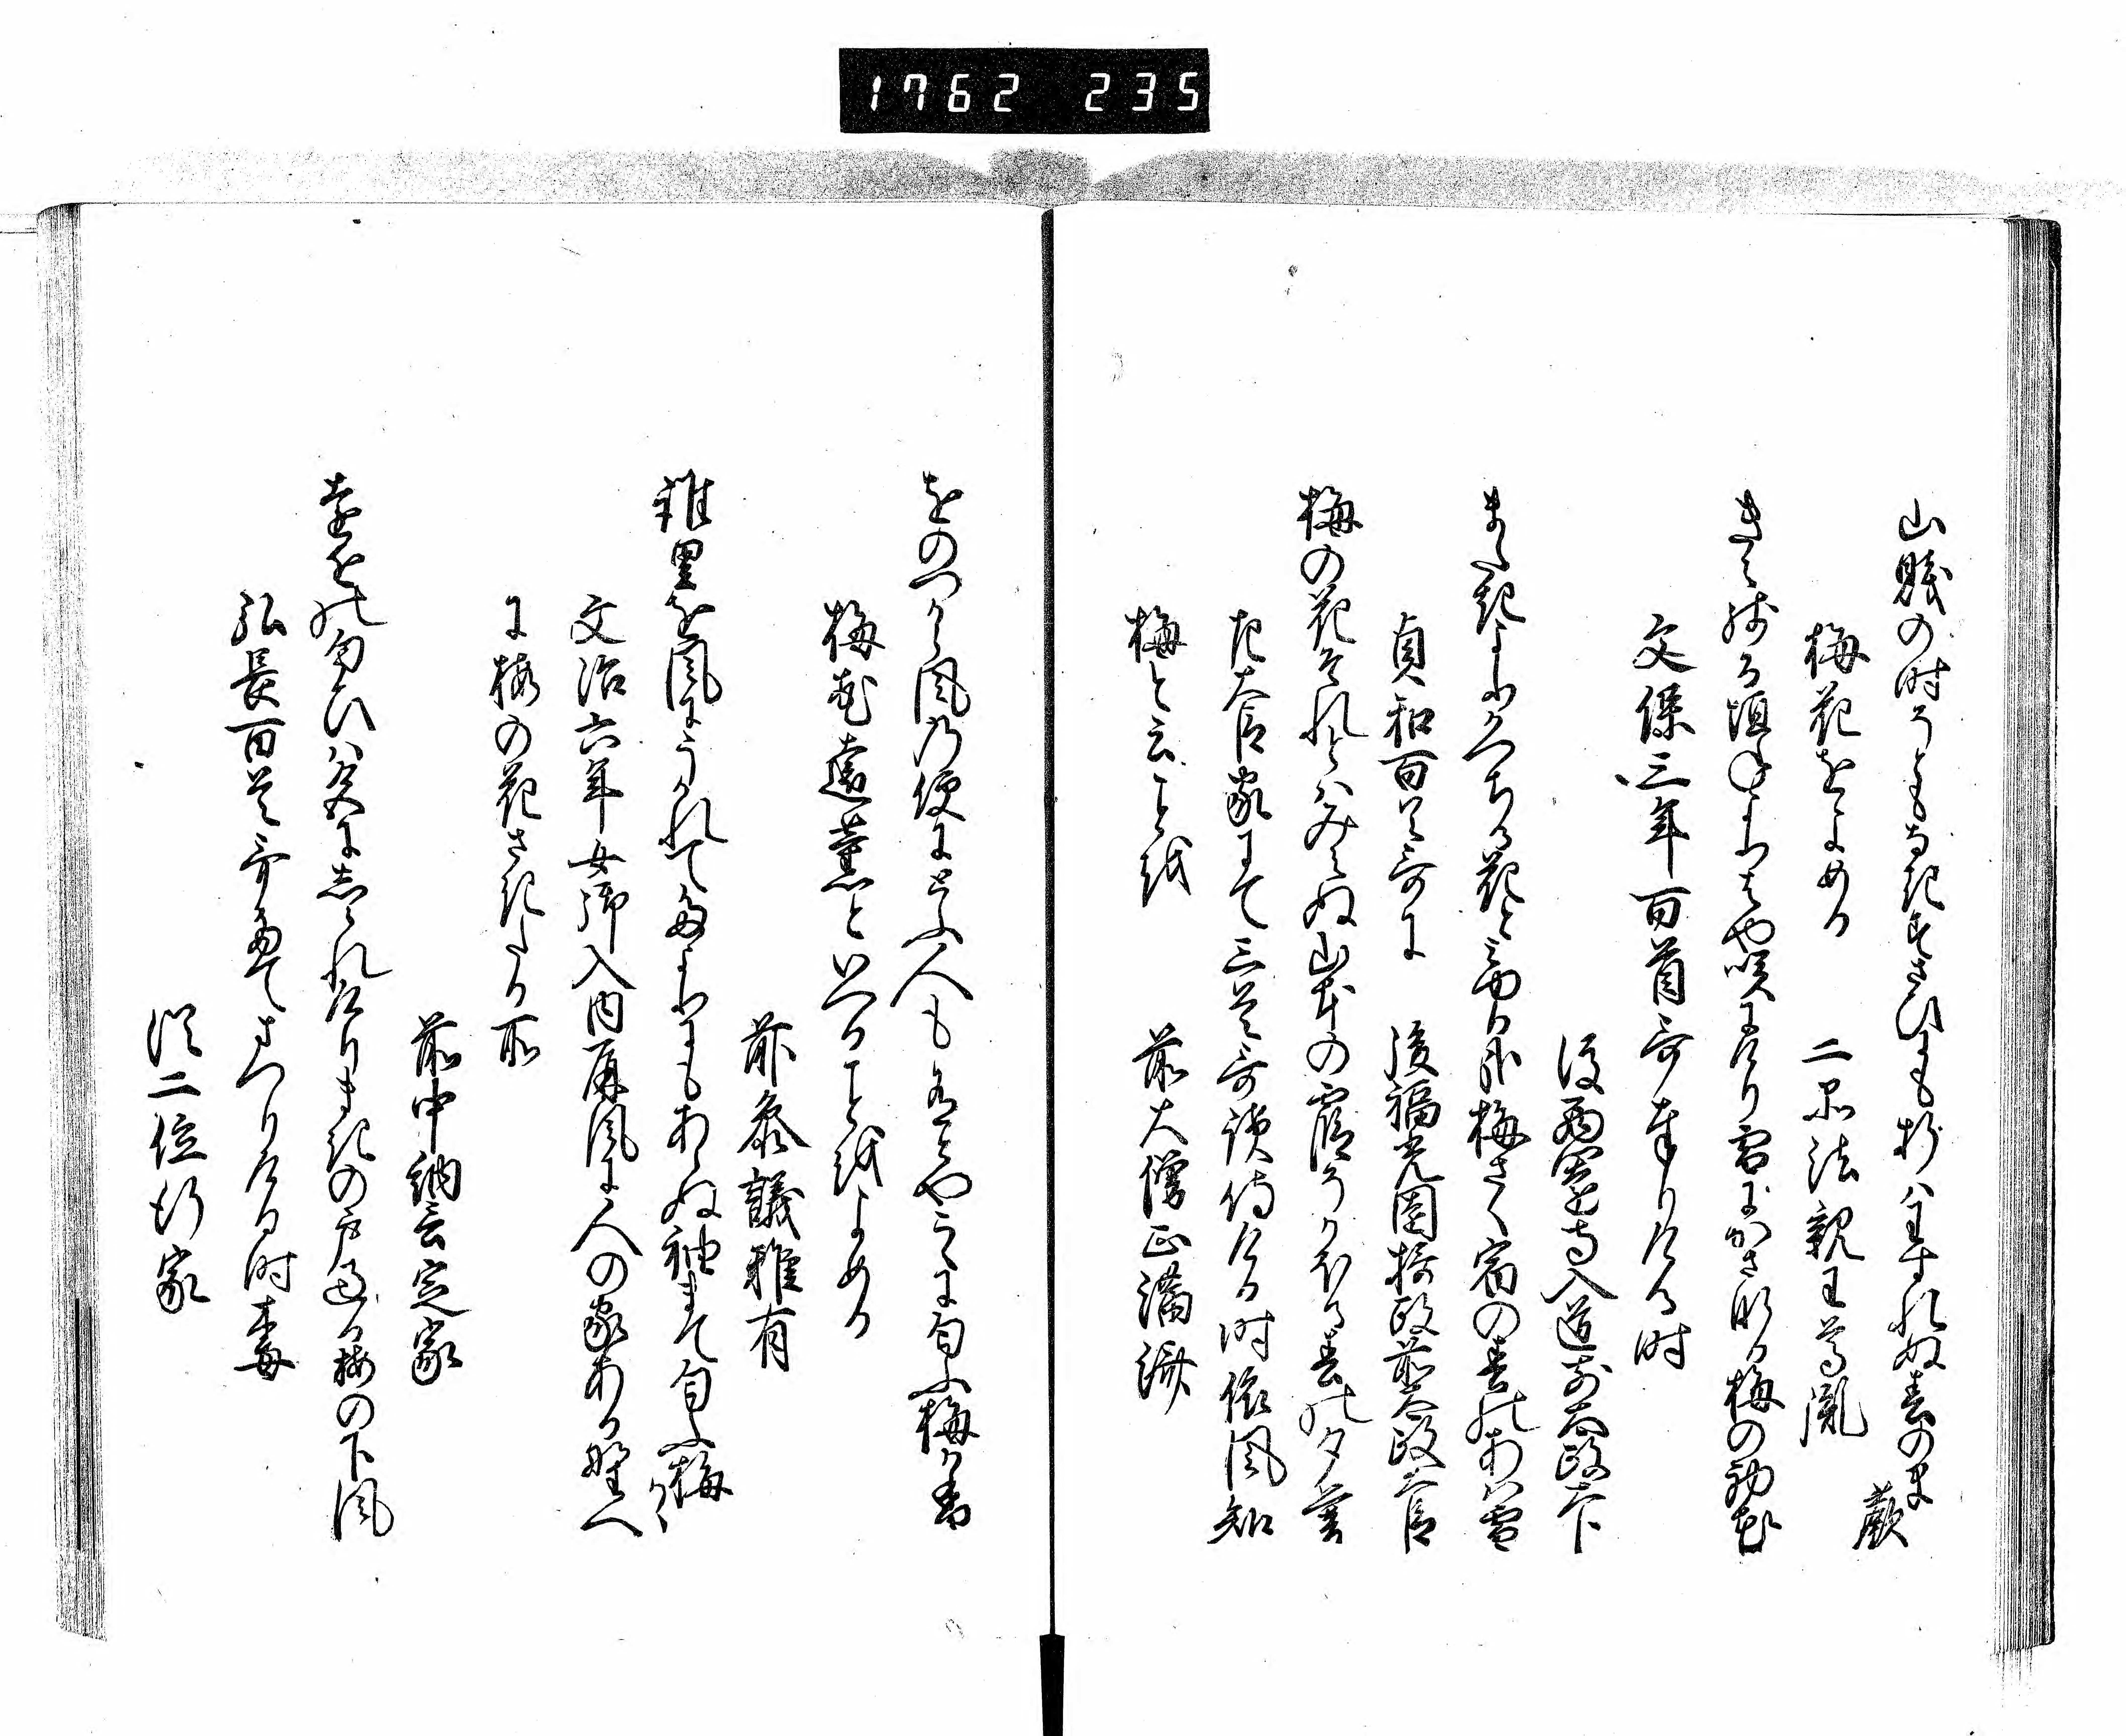 1762 235
山賤の時うともなきすさひにも折はわすれぬ春のま
歟
梅花をよめる 二品法親王尊胤
きえ残る垣ねにもはや咲にけり雪にかさなる梅の初花
文保三年百首哥奉りける時
後西園寺入道前太政大臣
またきよりかつちる花とみゆる哉梅さく宿の春のあは雪
貞和百首哥に 後福光園摂政前太政大臣
梅の花それとはみえぬ山本の霞にかほる春の夕暮
左大臣家にて三首哥読侍ける時依風知
梅と云ことを 前大僧正満済
をのつから風の便にとふ人も有とやこゝに匂ふ梅か香
梅花遠薫といへることをよめる
前参議雅有
誰里を風にうかれてたよりにもあらぬ袖まて匂ふ梅かゝ
文治六年女御入内屏風に人の家ある野へ
に梅の花さきたる所
前中納言定家
遠との匂ひは空にしられけりまきの戸過る梅の下風
弘長百首哥たてまつりける時梅
従二位行家